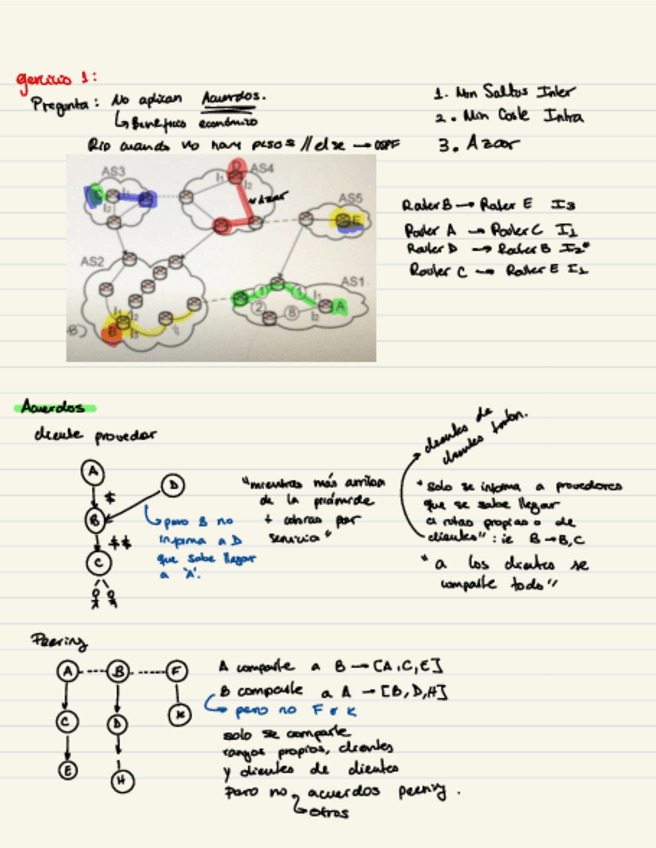 Ejercicio 1:
Pregunta: No aplican Acuerdos.
↳ Beneficio económico
Rip cuando no hay pesos // else → OSPF
1. Min Saltos Inter
2. Min Coste Intra
3. Azar
AS3
AS4
AS5
AS2
AS1
D
I1
I2
Azar
I1
I2
E
B
I3
1
1
2
8
I1
I2
A
Router B → Router E I3
Router A → Router C I1
Router D → Router B I2*
Router C → Router E I1
Acuerdos
cliente provedor
A
$
B
D
$$
C
↳ pero B no
informa a D
que sabe llegar
a 'A'.
"mientras más arriba
de la pirámide
+ cobras por
servicio"
clientes de
clientes tmbn.
"solo se informa a provedores
que se sabe llegar
a rutas propias o de
clientes" : ie B→B,C
"a los clientes se
comparte todo"
Peering
A
B
F
C
D
K
E
H
A comparte a B → [A,C,E]
B comparte a A → [B,D,H]
↳ pero no F o K
solo se comparte
rangos propios, clientes
y clientes de clientes
pero no acuerdos peering.
↳ otros